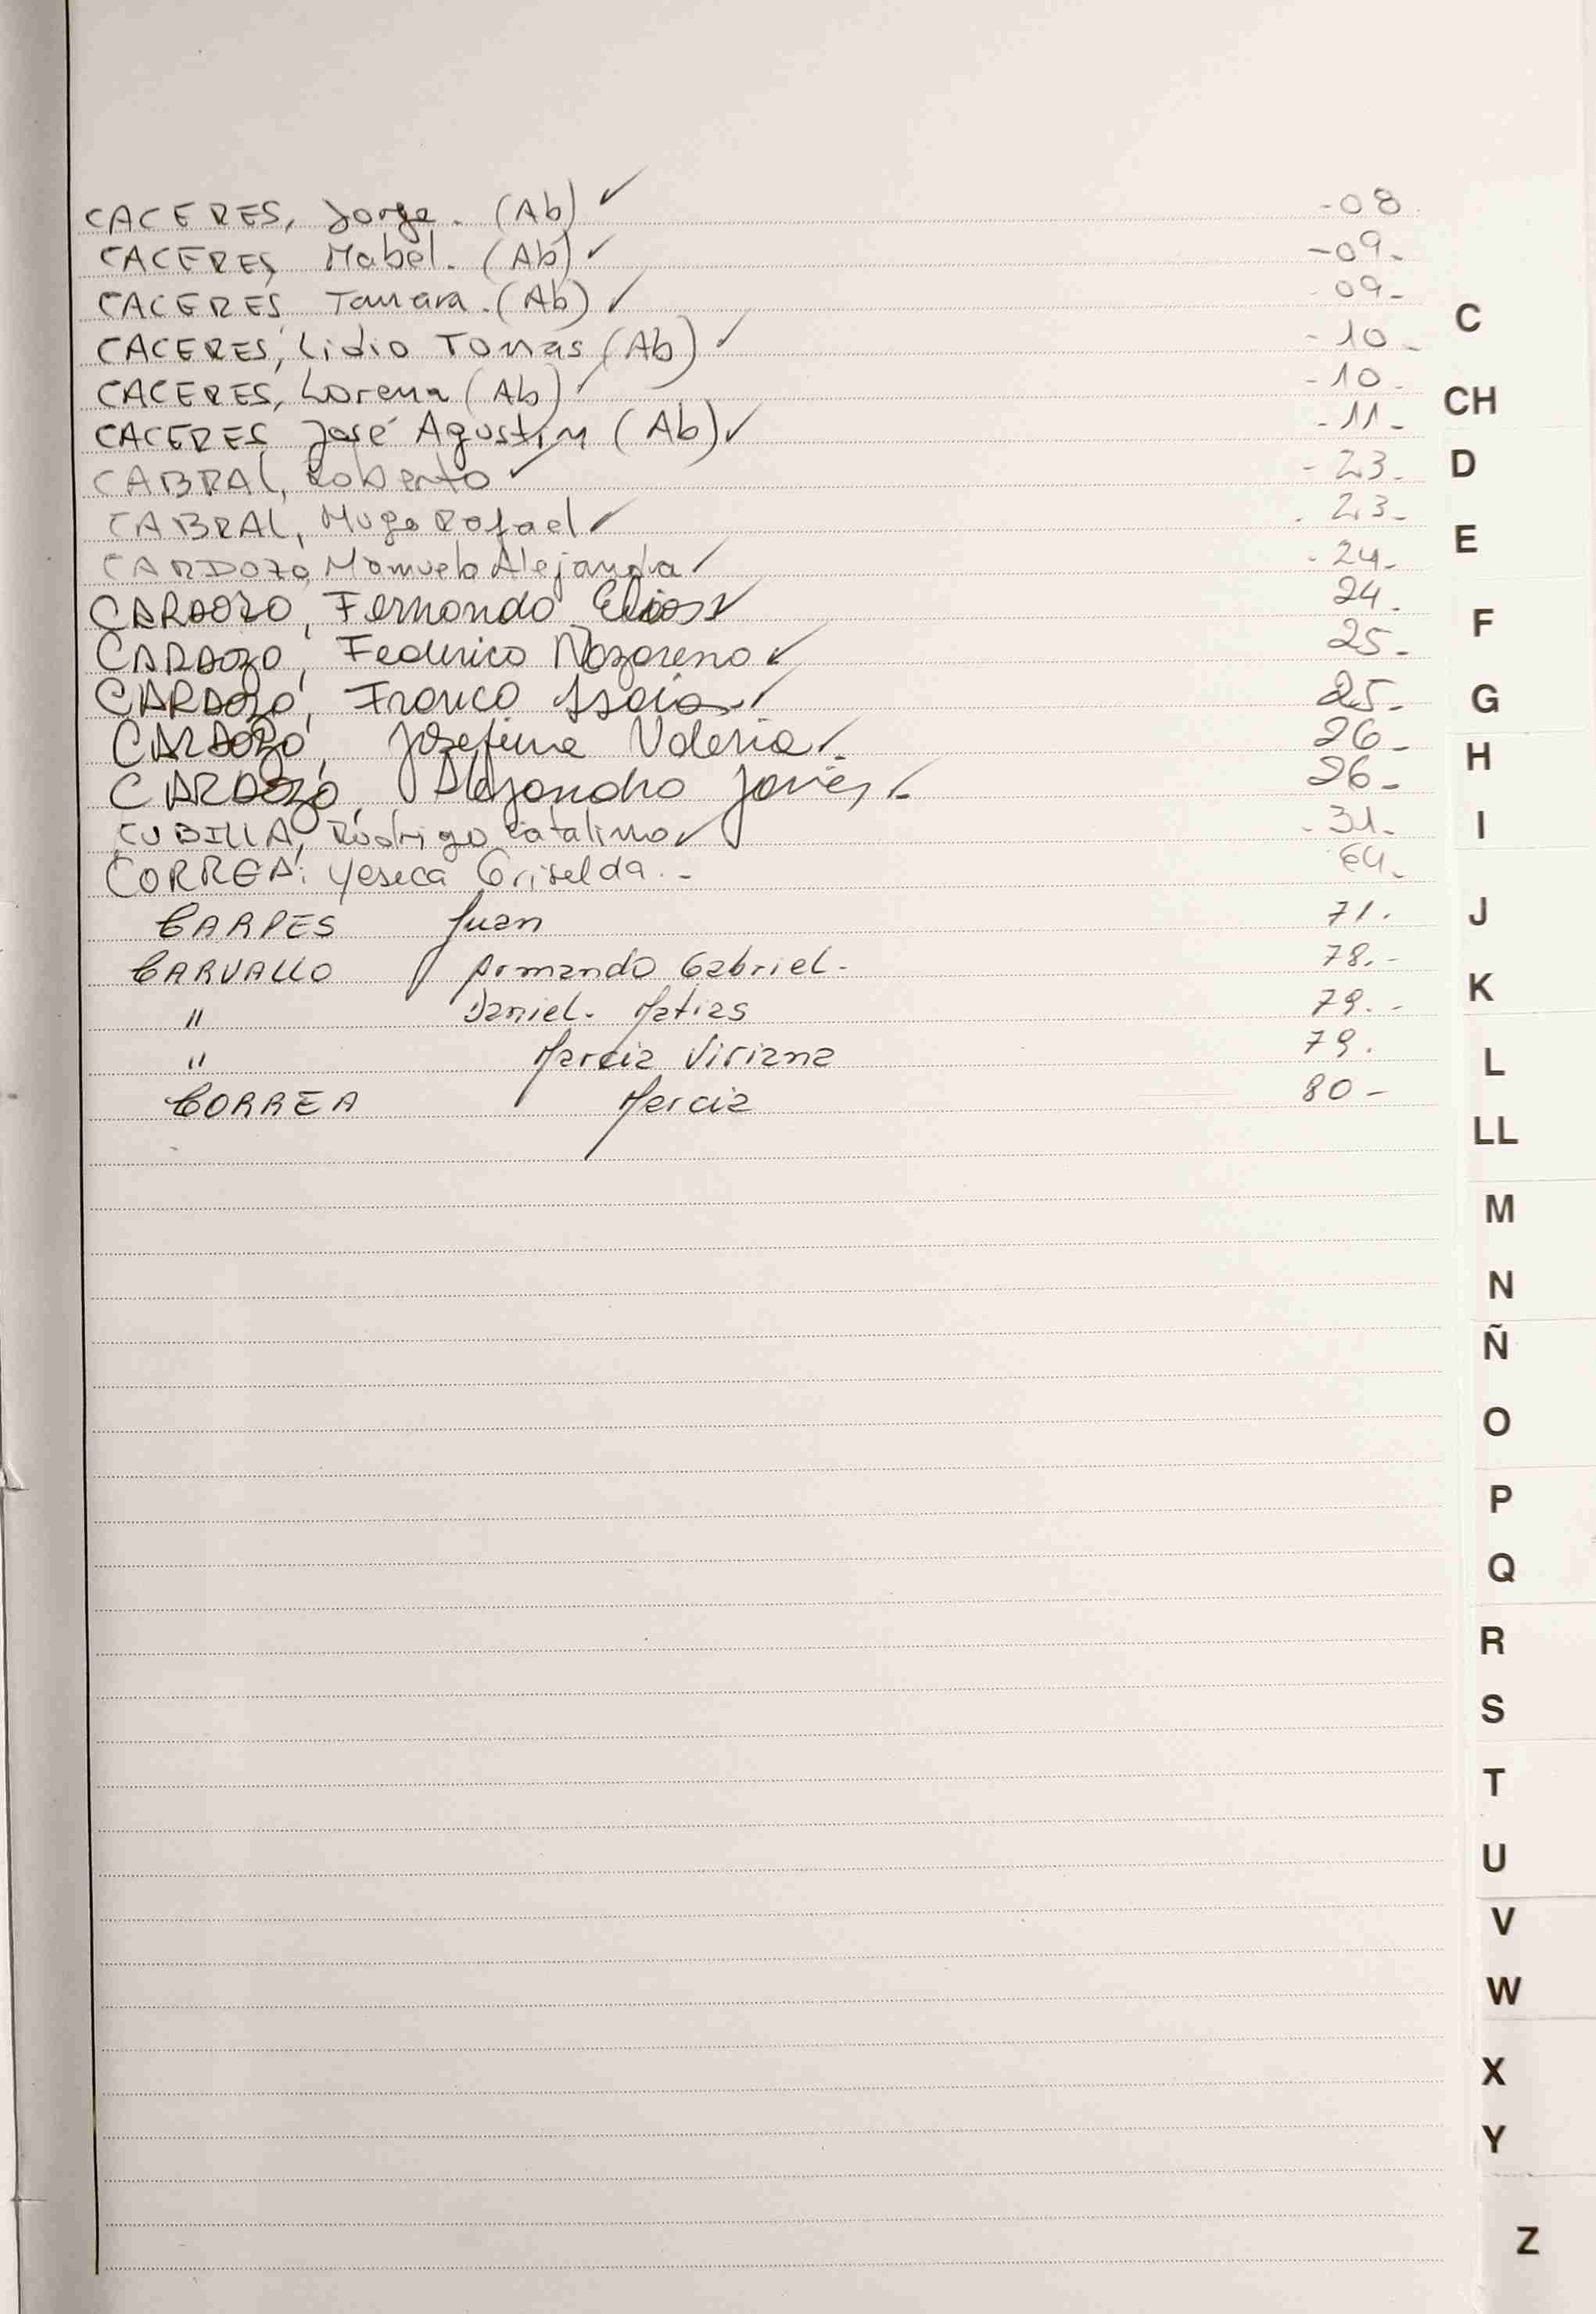 CACERES, Jorge. (Ab) ✓ -08.
CACERES, Mabel. (Ab) ✓ -09-
CACERES Tamara. (Ab) ✓ 09-
CACERES, Lidio Tomas (Ab) ✓ -10-
CACERES, Lorena (Ab) ✓ -10-
CACERES José Agustin (Ab) ✓ -11-
CABRAL, Roberto ✓ -23-
CABRAL, Hugo Rafael ✓ -23-
CARDOZO, Manuela Alejandra ✓ -24-
CARDOZO, Fernando Elias ✓ 24-
CARDOZO, Federico Nazareno ✓ 25-
CARDOZO, Franco Isaias ✓ 25-
CARDOZO, Josefina Valeria ✓ 26-
CARDOZO, Alejandro Javier ✓ 26-
CUBILLA, Rodrigo Catalino ✓ -31-
CORREA: Yeseca Griselda.- 64-
CARPES Juan 71.
CARVALLO Armando Gabriel- 78.-
" Daniel. Matias 79.-
" Marcia Viviana 79.
CORREA Marcia 80-
C
CH
D
E
F
G
H
I
J
K
L
LL
M
N
Ñ
O
P
Q
R
S
T
U
V
W
X
Y
Z